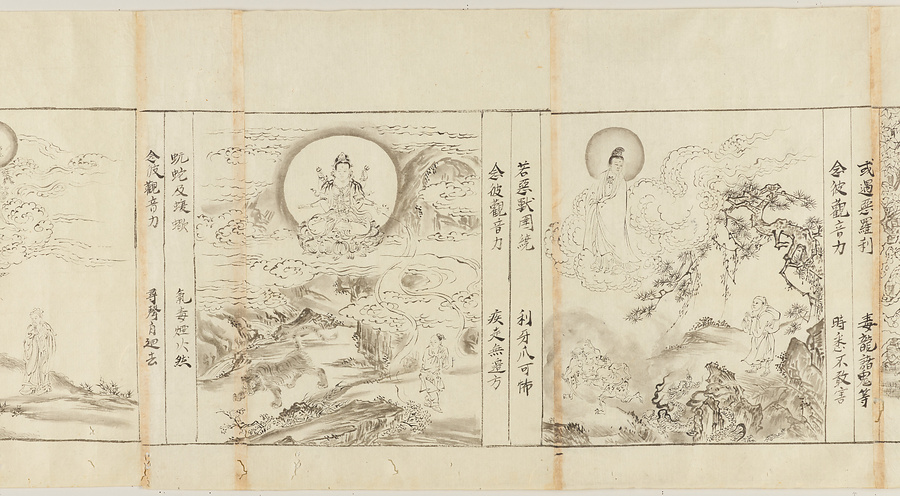 或遇惡羅刹 毒龍諸鬼等
念彼觀音力 時悉不敢害
若惡獸圍繞 利牙爪可怖
念彼觀音力 疾走無邊方
蚖蛇及蝮蠍 氣毒煙火然
念彼觀音力 尋聲自迴去